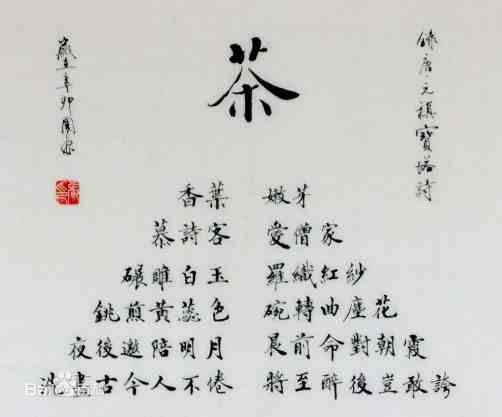 錄唐元稹寶塔詩
茶
香葉 嫩芽
慕詩客 愛僧家
碾雕白玉 羅織紅紗
銚煎黃蕊色 碗轉曲塵花
夜後邀陪明月 晨前命對朝霞
洗盡古今人不倦 將至醉後豈敢誇
歲在辛卯